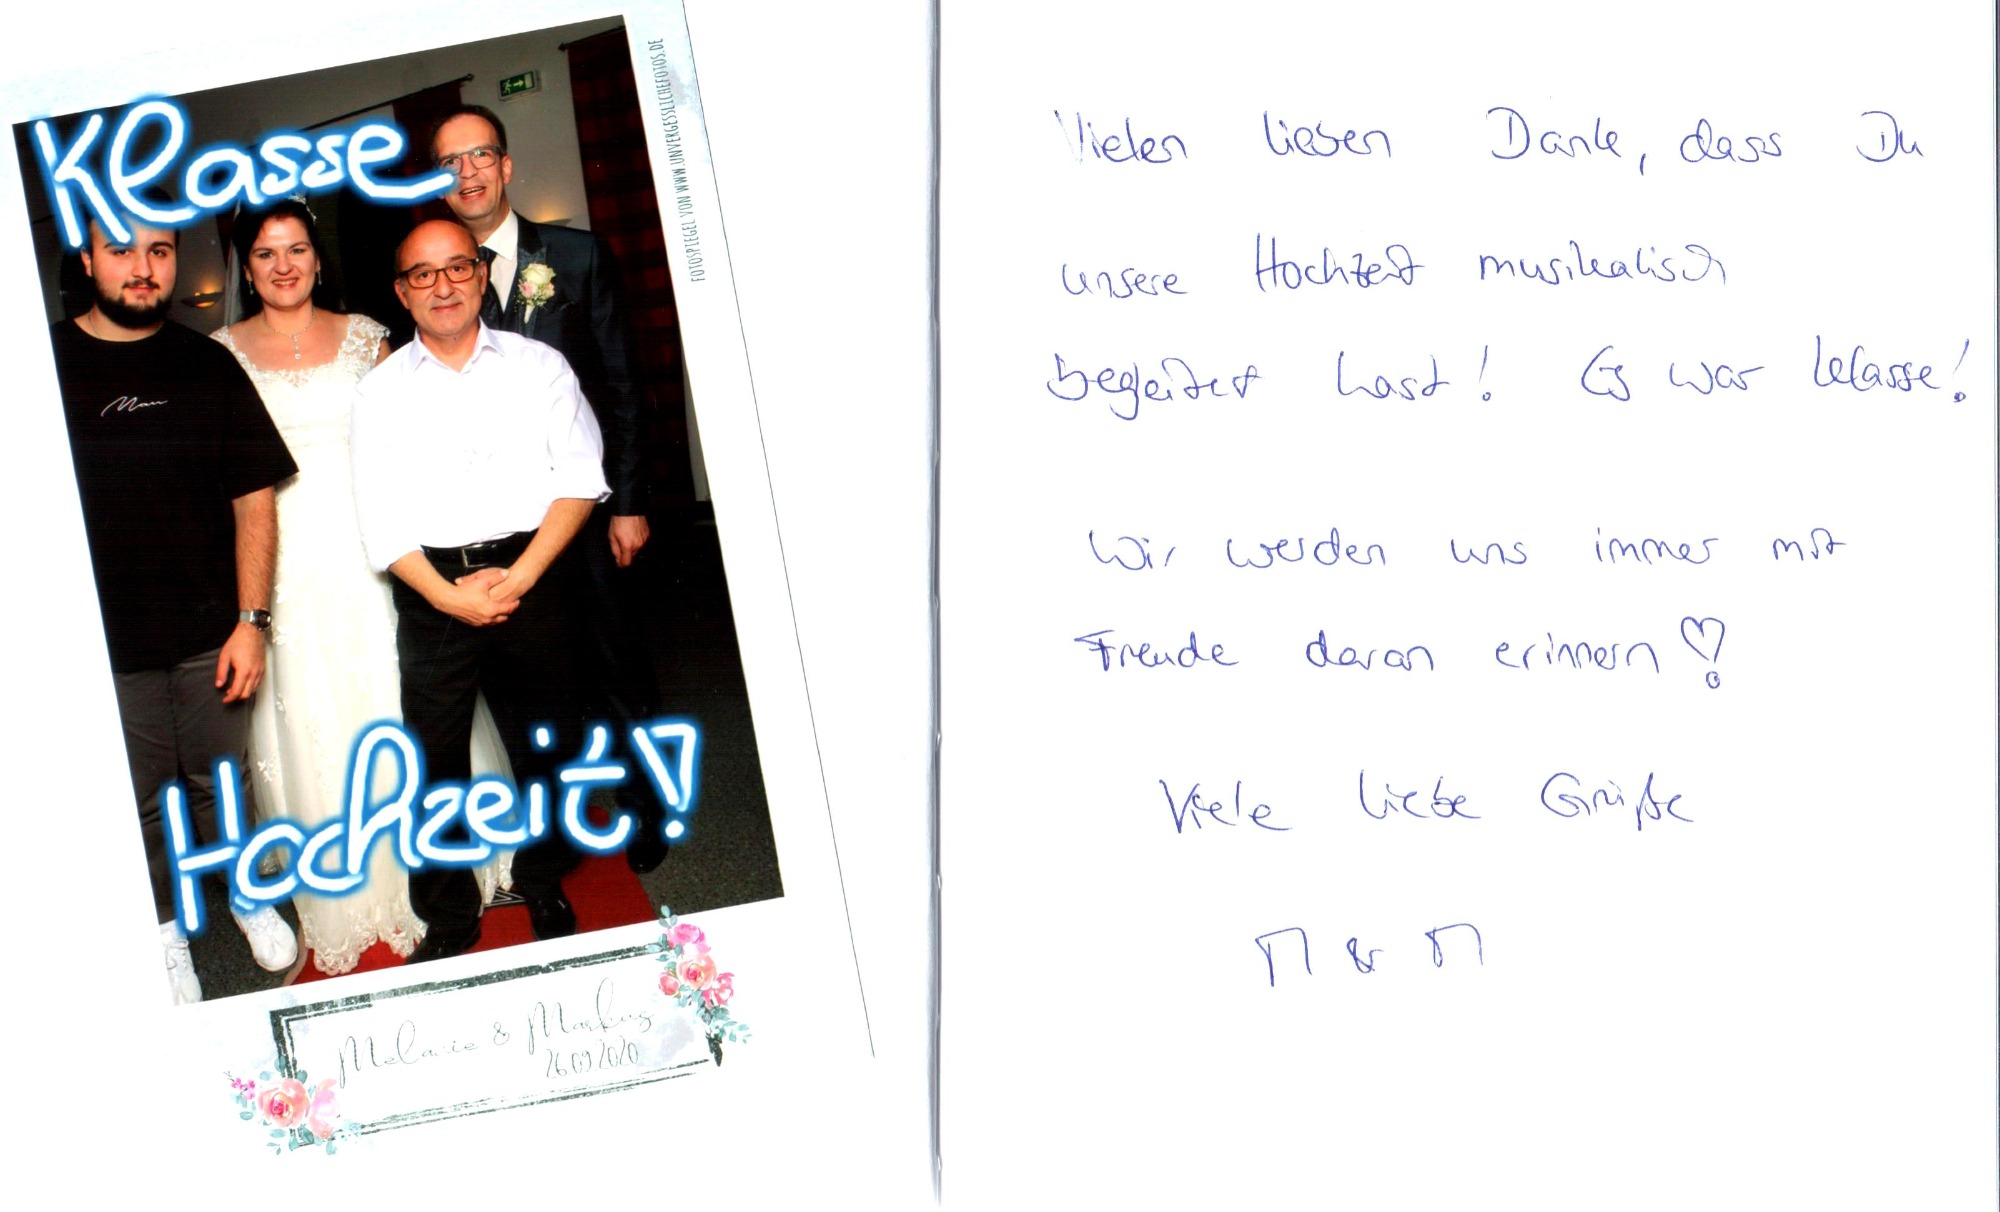 Klasse
Hochzeit!
FOTOSPIEGEL VON WWW.UNVERGESSLICHEFOTOS.DE
Melanie & Markus
26.09.2020
Vielen lieben Dank, dass Du
unsere Hochzeit musikalisch
begleitet hast! Es war klasse!
Wir werden uns immer mit
Freude daran erinnern
Viele liebe Grüße
M & M